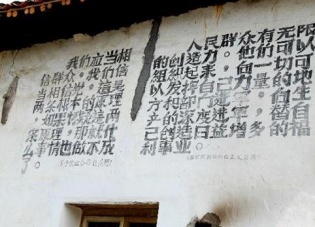 我们应当相
信群众,我们应
当相信党,这是
两条根本的原理
。如果怀疑这两
条原理,那就什
么事情也做不成
了。
人民群众有无限
的创造力。他们可以
组织起来,向一切可
以发挥自己力量的地
方和部门进军,向生
产的深度和广度进军,替自
己创造日益增多的福
利事业。